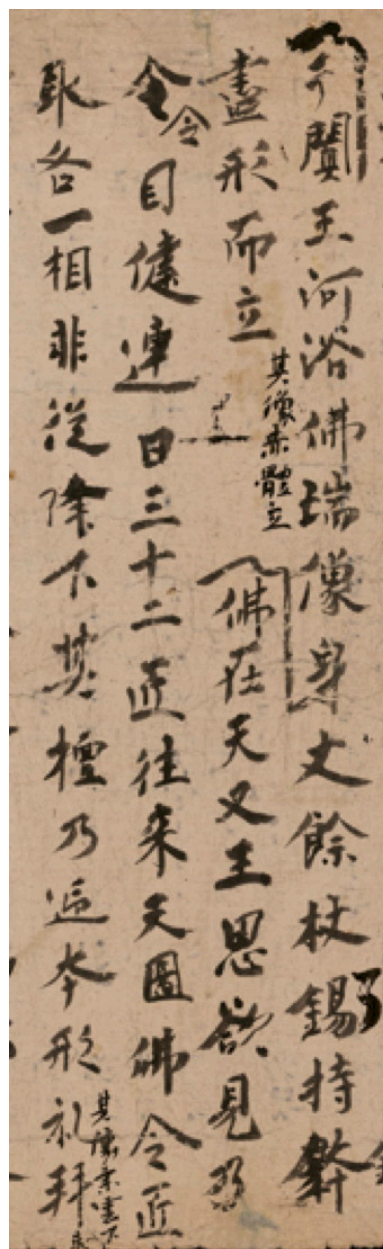 于闐玉河浴佛瑞像身丈餘杖錫持鉢
盡形而立
其像赤體立
佛在天又王思欲見乃
令令目健連日三十二匠往来天圖佛令匠
取各一相非從降下其檀乃迎本形礼拜
其像